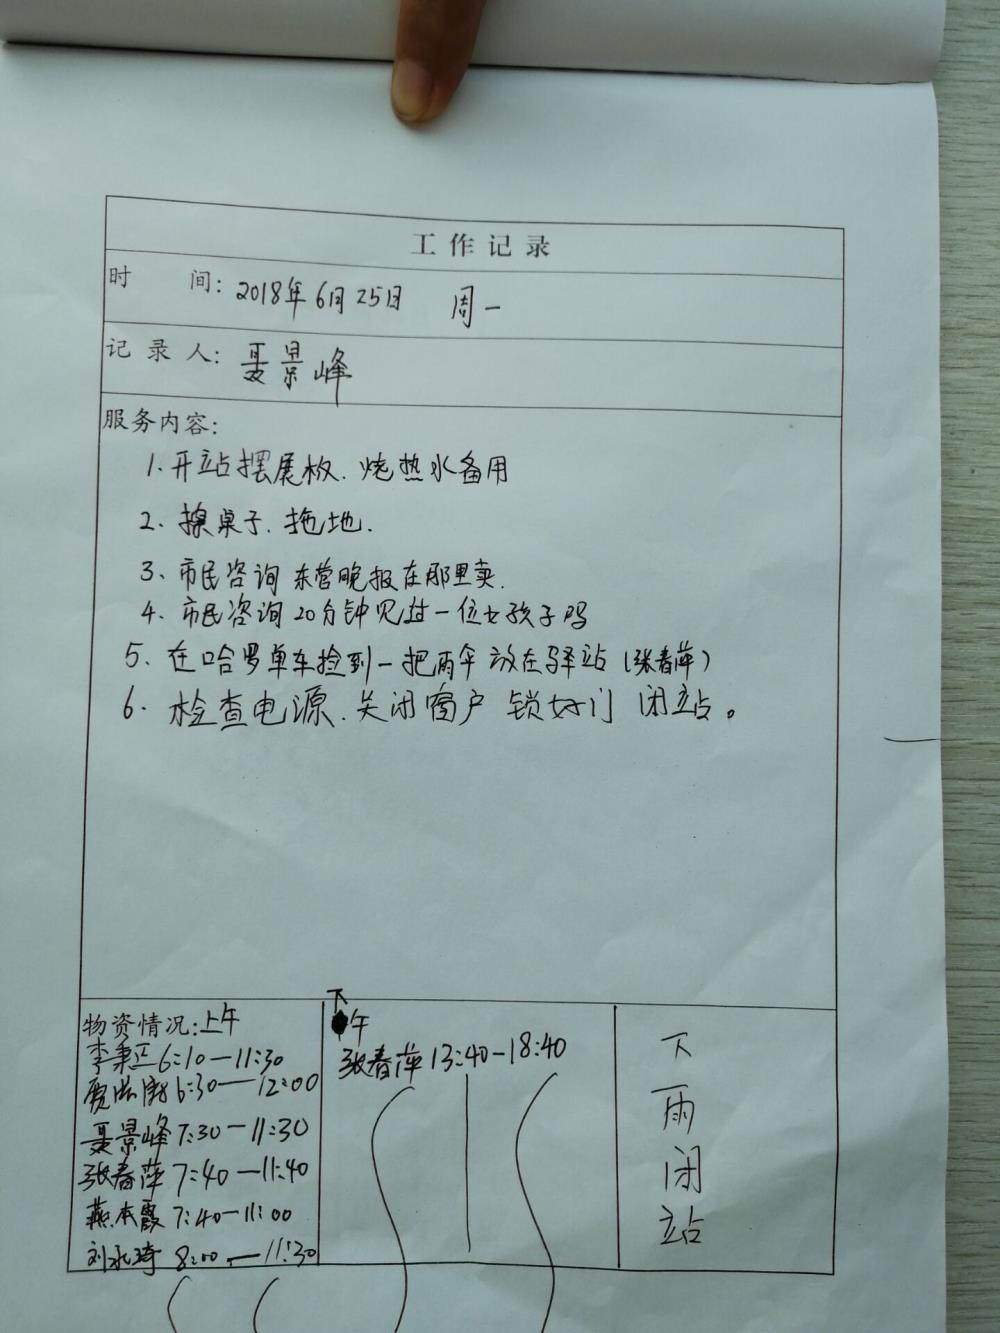 工作记录
时 间: 2018年6月25日 周一
记录人: 聂景峰
服务内容:
1. 开站摆展板. 烧热水备用
2、擦桌子. 拖地.
3、市民咨询 东营晚报在那里卖.
4、市民咨询 20分钟见过一位女孩子吗
5、在哈罗单车捡到一把雨伞 放在驿站 (张春萍)
6. 检查电源. 关闭窗户 锁好门 闭站。
物资情况: 上午
李秉正 6:10—11:30
6:30—12:00
聂景峰 7:30—11:30
张春萍 7:40—11:40
燕本霞 7:40—11:00
刘永琦 8:00—11:30
下午
张春萍 13:40—18:40
下雨闭站